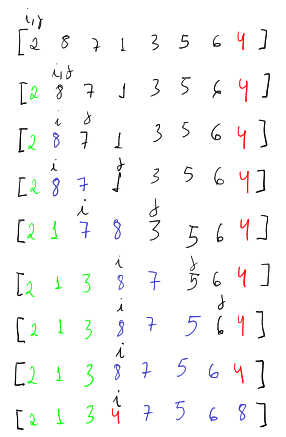 i,j
[2 8 7 1 3 5 6 4]
i,j
[2 8 7 1 3 5 6 4]
i j
[2 8 7 1 3 5 6 4]
i j
[2 8 7 1 3 5 6 4]
i j
[2 1 7 8 3 5 6 4]
i j
[2 1 3 8 7 5 6 4]
i j
[2 1 3 8 7 5 6 4]
i
[2 1 3 8 7 5 6 4]
i
[2 1 3 4 7 5 6 8]